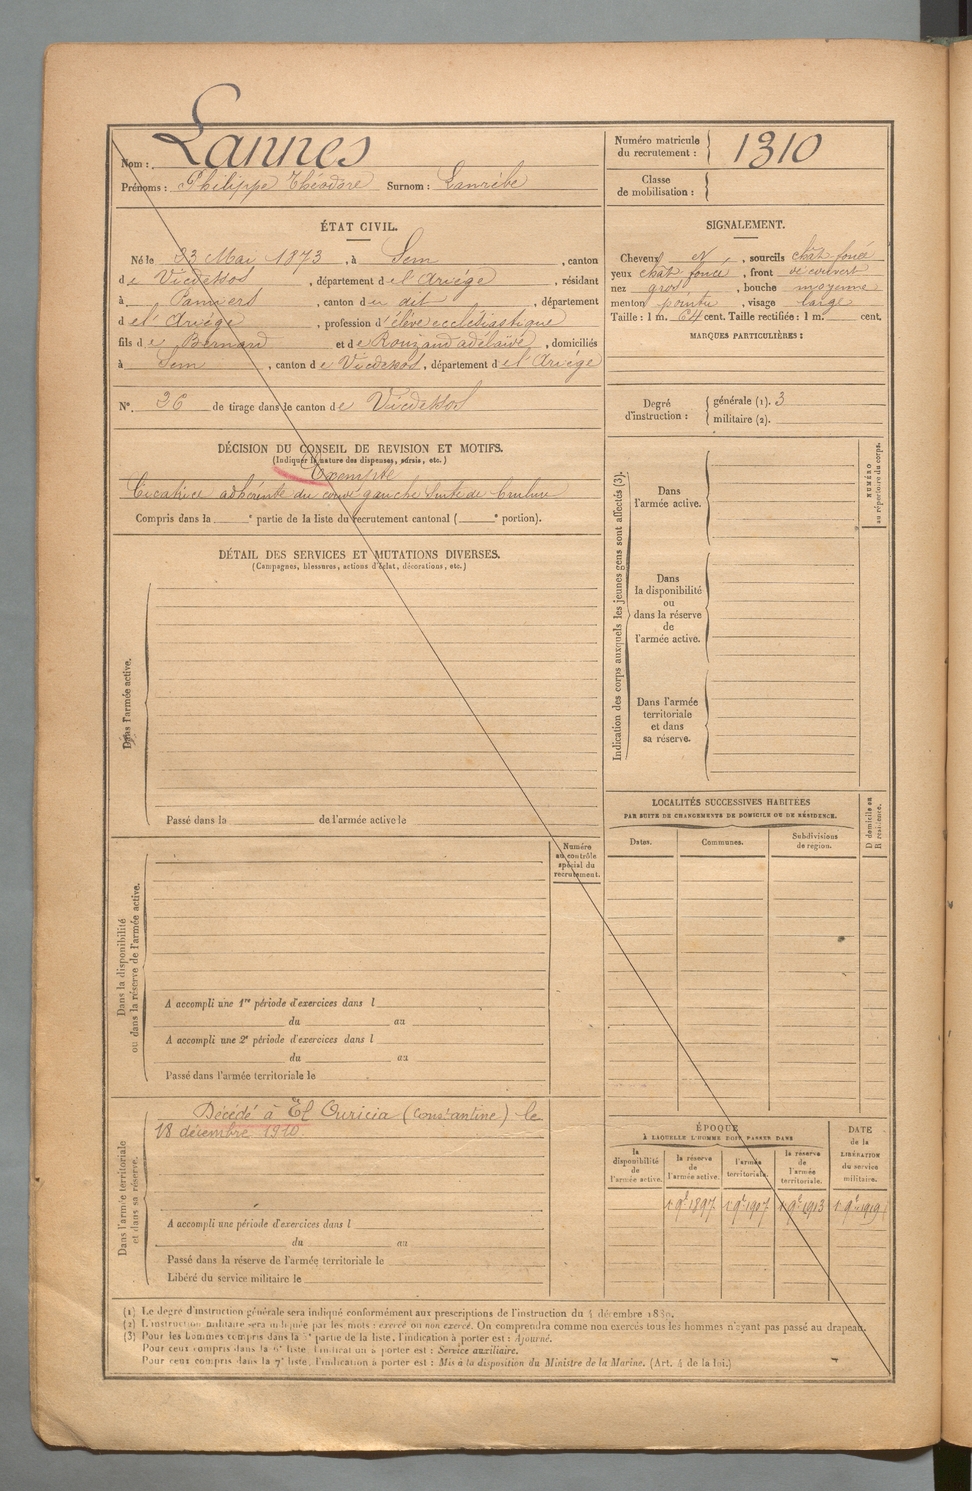 Nom : Lannes
Prénoms : Philippe Théodore Surnom :
Numéro matricule du recrutement : 1310
Classe de mobilisation :
ÉTAT CIVIL.
Né le 23 Mai 1873, à Sem, canton
de Vicdessos, département de l'Ariège, résidant
à Pamiers, canton du dit, département
de l'Ariège, profession d'élève ecclésiastique
fils de Bernard et de Rouzaud adélaïde, domiciliés
à Sem, canton de Vicdessos, département de l'Ariège
N° 26 de tirage dans le canton de Vicdessos
SIGNALEMENT.
Cheveux et, sourcils chât foncé
yeux chât foncé, front découvert
nez gros, bouche moyenne
menton pointu, visage large
Taille : 1 m. 64 cent. Taille rectifiée : 1 m. cent.
MARQUES PARTICULIÈRES :
Degré d'instruction : générale (1). 3
militaire (2).
DÉCISION DU CONSEIL DE REVISION ET MOTIFS.
(Indiquer la nature des dispenses, sursis, etc.)
Exempté
Cicatrice adhérente du gauche suite de brulure
Compris dans la e partie de la liste du recrutement cantonal ( e portion).
DÉTAIL DES SERVICES ET MUTATIONS DIVERSES.
(Campagnes, blessures, actions d'éclat, décorations, etc.)
Dans l'armée active.
Passé dans la de l'armée active le
Indication des corps auxquels les jeunes gens sont affectés (3).
Dans l'armée active.
Dans la disponibilité ou dans la réserve de l'armée active.
Dans l'armée territoriale et dans sa réserve.
NUMÉRO au répertoire du corps.
LOCALITÉS SUCCESSIVES HABITÉES
PAR SUITE DE CHANGEMENTS DE DOMICILE OU DE RÉSIDENCE.
Dates. Communes. Subdivisions de région.
D domicile ou R résidence.
Numéro au contrôle spécial du recrutement.
Dans la disponibilité ou dans la réserve de l'armée active.
A accompli une 1re période d'exercices dans l
du au
A accompli une 2e période d'exercices dans l
du au
Passé dans l'armée territoriale le
Dans l'armée territoriale et dans sa réserve.
Décédé à El Ouricia (Constantine) le
18 décembre 1910.
A accompli une période d'exercices dans l
du au
Passé dans la réserve de l'armée territoriale le
Libéré du service militaire le
ÉPOQUE
À LAQUELLE L'HOMME DOIT PASSER DANS
la disponibilité de l'armée active.
la réserve de l'armée active.
l'armée territoriale.
la réserve de l'armée territoriale.
DATE de la LIBÉRATION du service militaire.
1 9bre 1897 1 9bre 1907 1 9bre 1913 1 9bre 1919
(1) Le degré d'instruction générale sera indiqué conformément aux prescriptions de l'instruction du 4 décembre 1889.
(2) L'instruction militaire sera indiquée par les mots : exercé ou non exercé. On comprendra comme non exercés tous les hommes n'ayant pas passé au drapeau.
(3) Pour les hommes compris dans la partie de la liste, l'indication à porter est : Ajourné.
Pour ceux compris dans la liste, l'indication à porter est : Service auxiliaire.
Pour ceux compris dans la 7e liste, l'indication à porter est : Mis à la disposition du Ministre de la Marine. (Art. 4 de la loi.)